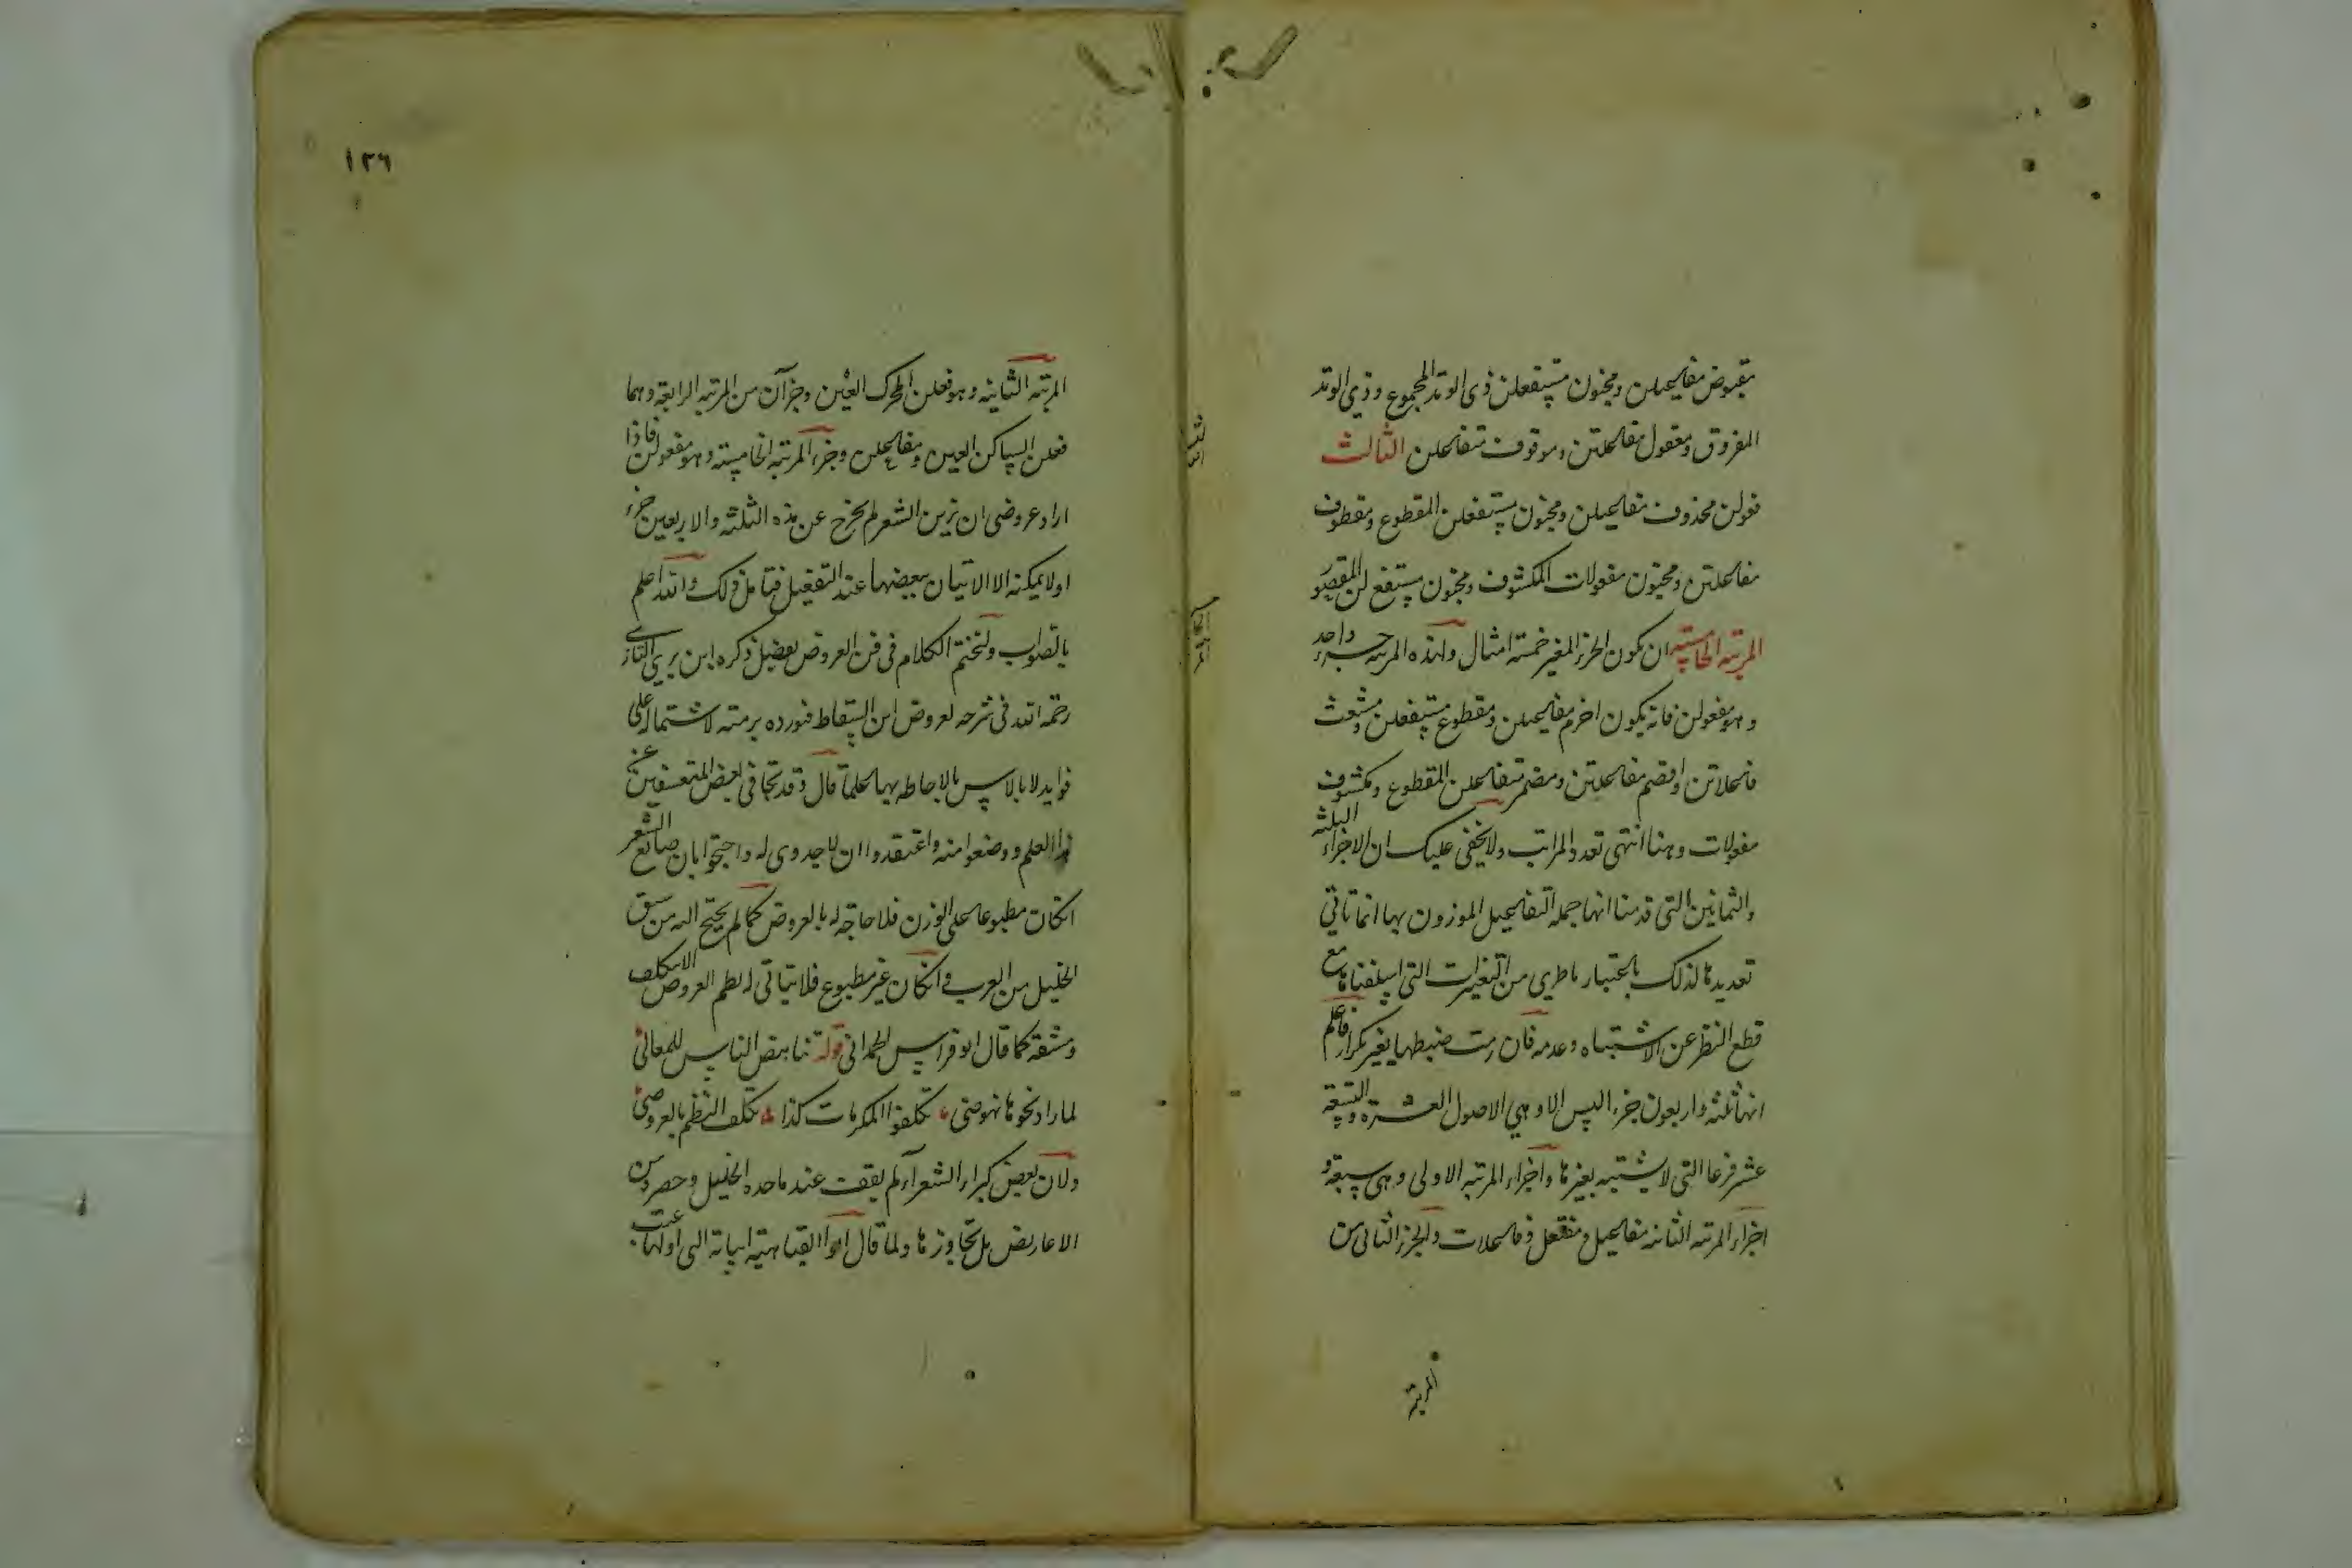 مقبوض مفاعيلن ومخبون مستفعلن ذى الوتد المجموع وذي الوتد
المفروق ومعقول مفاعلتن وموقوف متفاعلن الثالث
فعولن محذوف مفاعيلن ومخبون مستفعلن المقطوع ومقطوف
مفاعلتن ومخبون مفعولات المكشوف ومخبون مستفع لن المقصور
المرتبة الخامسة ان يكون الجزء المغير خمسة امثال ولهذه المرتبة جزء واحد
وهو مفعولن فانه يكون اخرم مفاعيلن ومقطوع مستفعلن ومشعث
فاعلاتن واقصم مفاعلتن ومضمر متفاعلن المقطوع ومكشوف
مفعولات وهنا انتهى تعدد المراتب ولا يخفى عليك ان الاجزاء الثلثة
والثمانين التى قدمنا انها جملة التفاعيل الموزون بها انما تاتي
تعديدها لذلك باعتبار ما طرى من التغيرات التى اسلفناها مع
قطع النظر عن الاشتباه وعدمه فان رمت ضبطها بغير تكرار فاعلم
انها ثلثة واربعون جزء ليس الا وهي الاصول العشرة والتسعة
عشر فرعا التى لا يشتبه بغيرها واجزاء المرتبة الاولى وهى سبعة و
اجزاء المرتبة الثانية مفاعيل ومفتعل وفاعلات والجزء الثانى من
المرتبة
١٢٦
المرتبة الثانية وهو فعلن المحرك العين وجزآن من المرتبة الرابعة وهما
فعلن الساكن العين ومفاعلن وجزء المرتبة الخامسة وهو مفعولن فاذا
اراد عروضى ان يزن الشعر لم يخرج عن هذه الثلثة والاربعين جزء
اولا يمكنه الا الاتيان ببعضها عند التفعيل فتامل ذلك والله اعلم
بالصواب ولنختم الكلام فى فن العروض بفصل ذكره ابن بري التازى
رحمه الله فى شرحه لعروض ابن السقاط فنورده برمته لاشتماله على
فوايد لا باس بالاحاطة بها علما قال وقد تجافى بعض المتعسفين عن
هذا العلم ووضعوا منه واعتقدوا ان لا جدوى له واحتجوا بان صانع الشعر
ان كان مطبوعا على الوزن فلا حاجة له بالعروض كما لم يحتج اليه من سبق
الخليل من العرب وان كان غير مطبوع فلا يتاتى له نظم العروض الا بتكلف
ومشقة كما قال ابو فراس الحمدانى قوله تناهض الناس للمعالى
لما راو نحوها نهوضى تكلفوا المكرمات كدا تكلف النظم بالعروض
ولان بعض كبراء الشعرآء لم يقف عند ما حده الخليل وحصره من
الاعاريض بل تجاوزها ولما قال ابو العتاهية ابياته التى اولها عتب